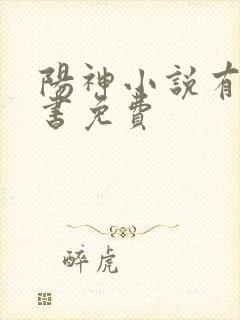 陽神小説有
書免費
醉虎